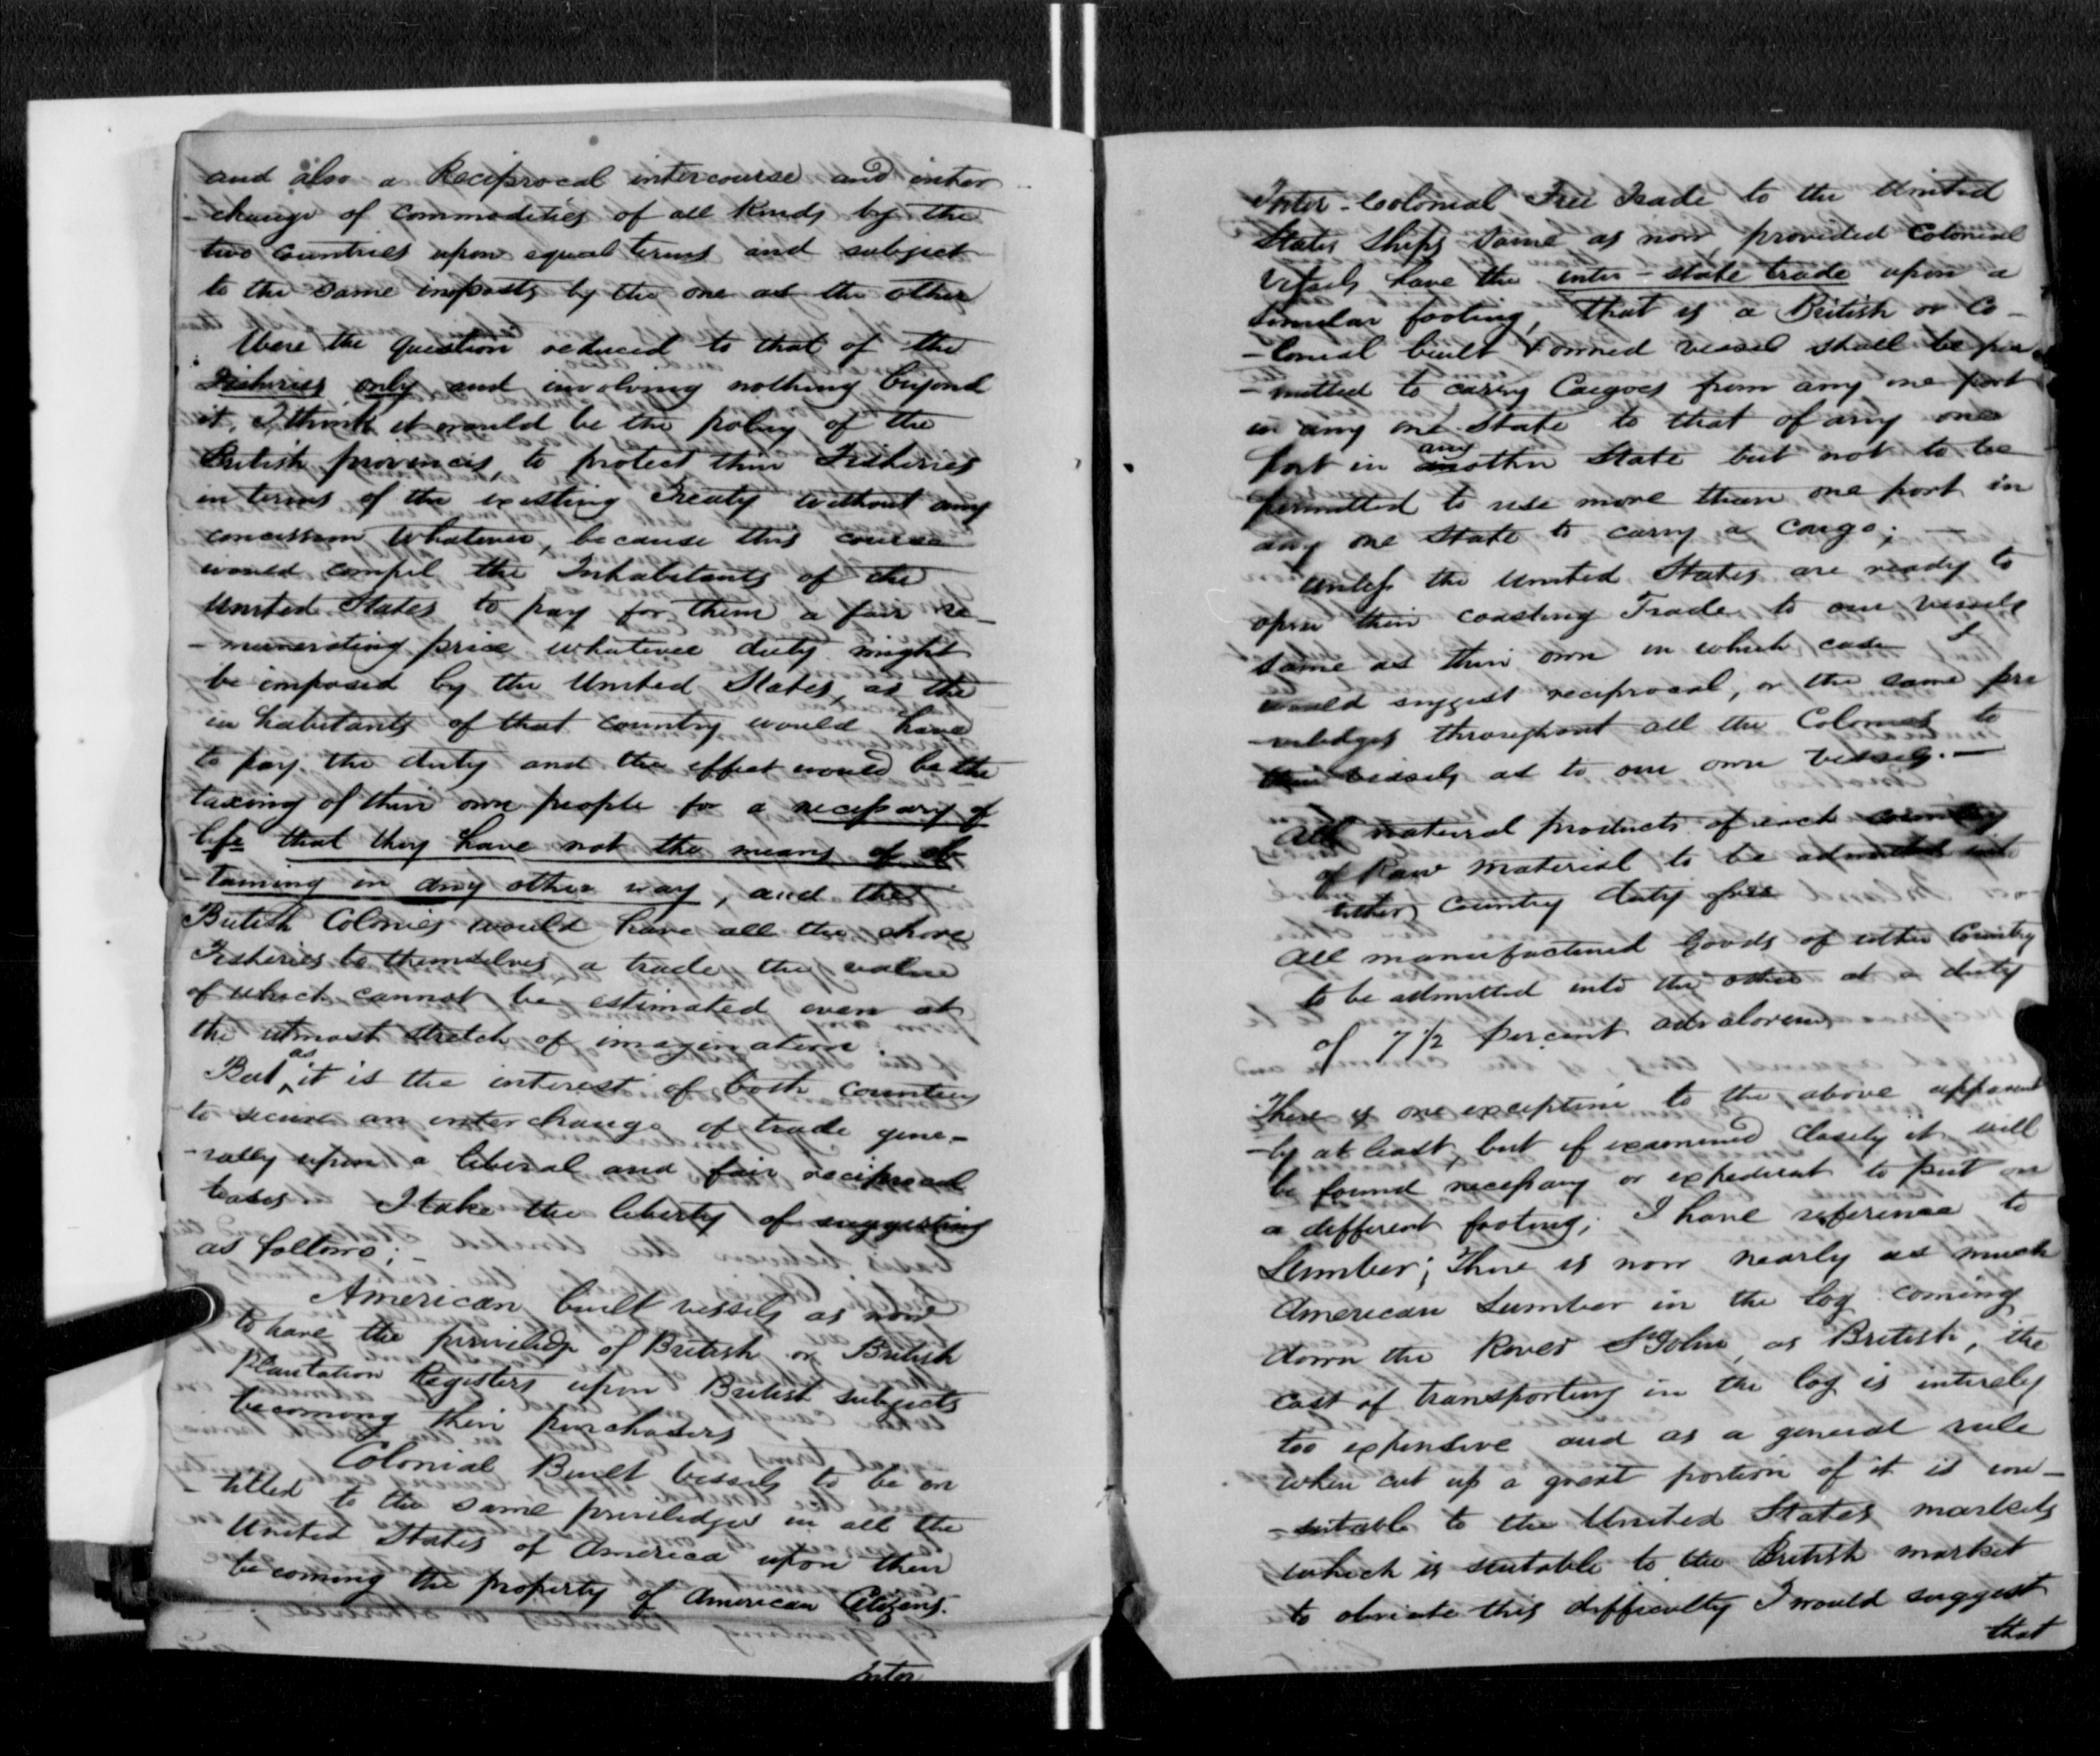 and also a Reciprocal intercourse and inter
-change of Commodities of all Kinds by the
two Countries upon equal terms and subject
to the same imposts by the one as the other
Were the Question reduced to that of the
Fisheries only and involving nothing beyond
it, I think it would be the policy of the
British provinces, to protect their Fisheries
in terms of the existing Treaty without any
concession whatever, because this course
would compel the Inhabitants of the
United States to pay for them a fair re-
-munerating price whatever duty might
be imposed by the United States, as the
inhabitants of that country would have
to pay the duty and the effect would be the
taxing of their own people for a necessary of
life that they have not the means of ob
-taining in any other way, and the
British Colonies would have all the shore
Fisheries to themselves, a trade, the value
of which cannot be estimated even at
the utmost stretch of imagination.
But as it is the interest of both countries
to secure an interchange of trade gene-
-rally upon a liberal and fair reciprocal
bases I take the liberty of suggesting
as follows; -
American built vessels as now
to have the priviledge of British or British
Plantation Registers upon British subjects
becoming their purchasers
Colonial Built vessels to be en
-titled to the same priviledges in all the
United States of America upon their
becoming the property of American Citizens.
Inter
Inter-Colonial Free Trade to the United
States Ships same as now, provided Colonial
Vessels have the inter-state trade upon a
similar footing, that is a British or Co-
-lonial built & owned vessel shall be per
-mitted to carry Cargoes from any one port
in any one State to that of any one
port in any other State but not to be
permitted to use more than one port in
any one State to carry a Cargo; -
Unless the United States are ready to
open their coasting Trade to our vessels
same as their own in which case I
would suggest reciprocal, or the same pri
-viledges throughout all the Colonies to
their vessels as to our own Vessels. -
All natural products of each Country
of Raw material to be admitted into
either Country duty free
All manufactured Goods of either Country
to be admitted into the other at a duty
of 7 1/2 percent advalorem
There is one exception to the above apparent
-ly at least, but if examined closely it will
be found necessary or expedient to put on
a different footing; I have reference to
Lumber; There is now nearly as much
American Lumber in the log coming
down the River St John, as British, the
cost of transporting in the log is intirely
too expensive and as a general rule
when cut up a great portion of it is un-
-suitable to the United States markets
which is suitable to the British market
to obviate this difficulty I would suggest
that